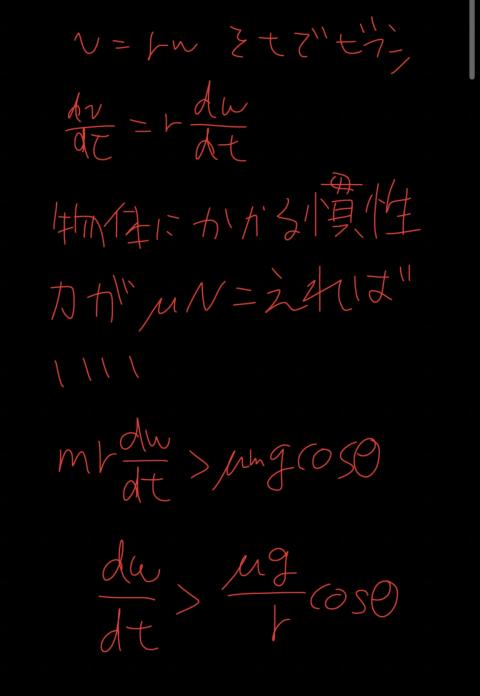 v=rω をtでビブン
dv/dt = r dω/dt
物体にかかる慣性
力がμNこえれば
いい
mr dω/dt > μmgcosθ
dω/dt > μg/r cosθ